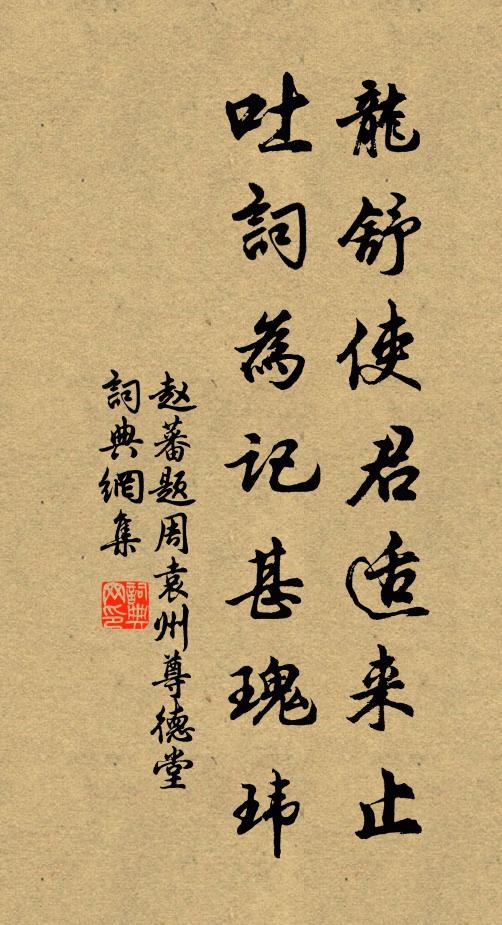 龍舒使君适来止
吐詞為記甚瑰玮
赵蕃题周袁州尊德堂
詞典網集
詞典
网印